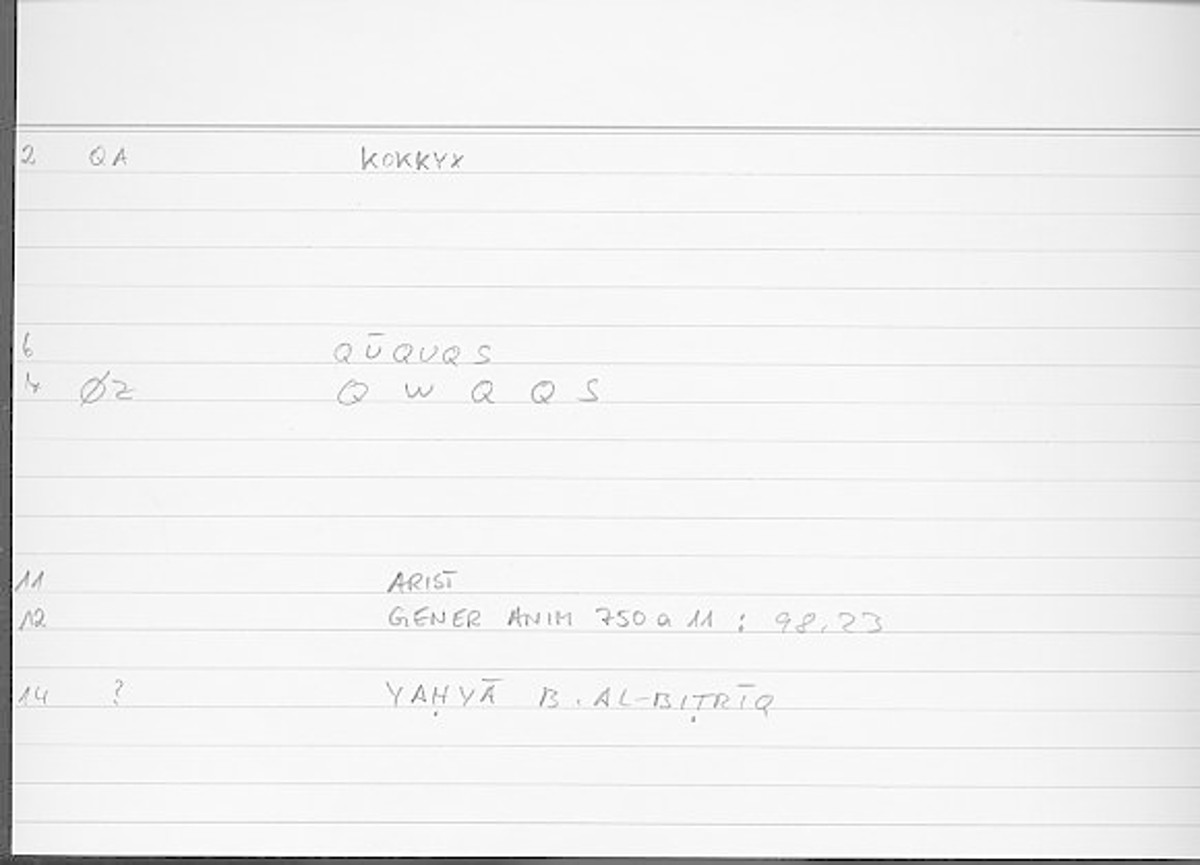 2 QA KOKKYX
6 QŪQUQS
4 ØZ Q W Q Q S
11 ARIST
12 GENER ANIM 750 a 11 : 98,23
14 ? YAḤYĀ B. AL-BIṬRĪQ